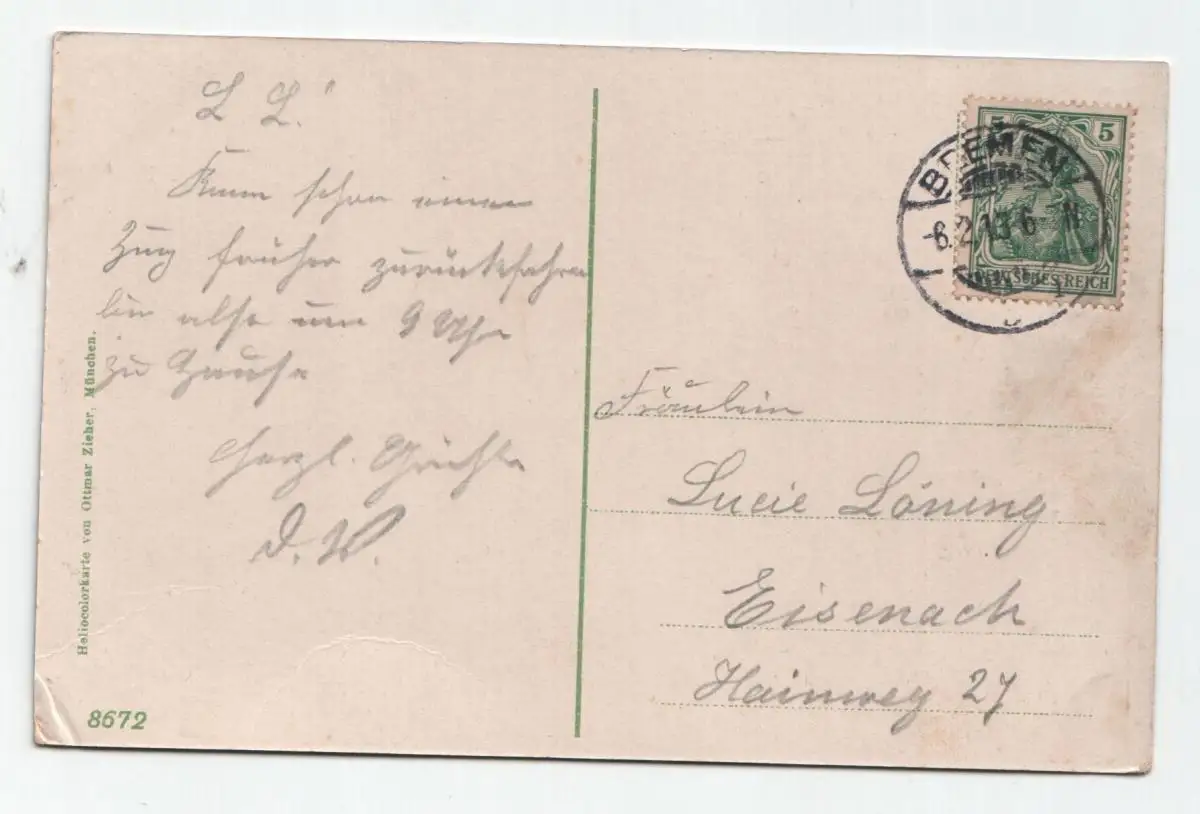 L L!
Kann schon einen
Zug früher zurückfahren
bin also um 9 Uhr
zu Hause
Herzl. Grüße
D. W.
Heliocolorkarte von Ottmar Zieher, München.
8672
5
BREMEN
6.2.13 6 N
DEUTSCHES REICH
1
Fräulein
Lucie Löning
Eisenach
Hainweg 27